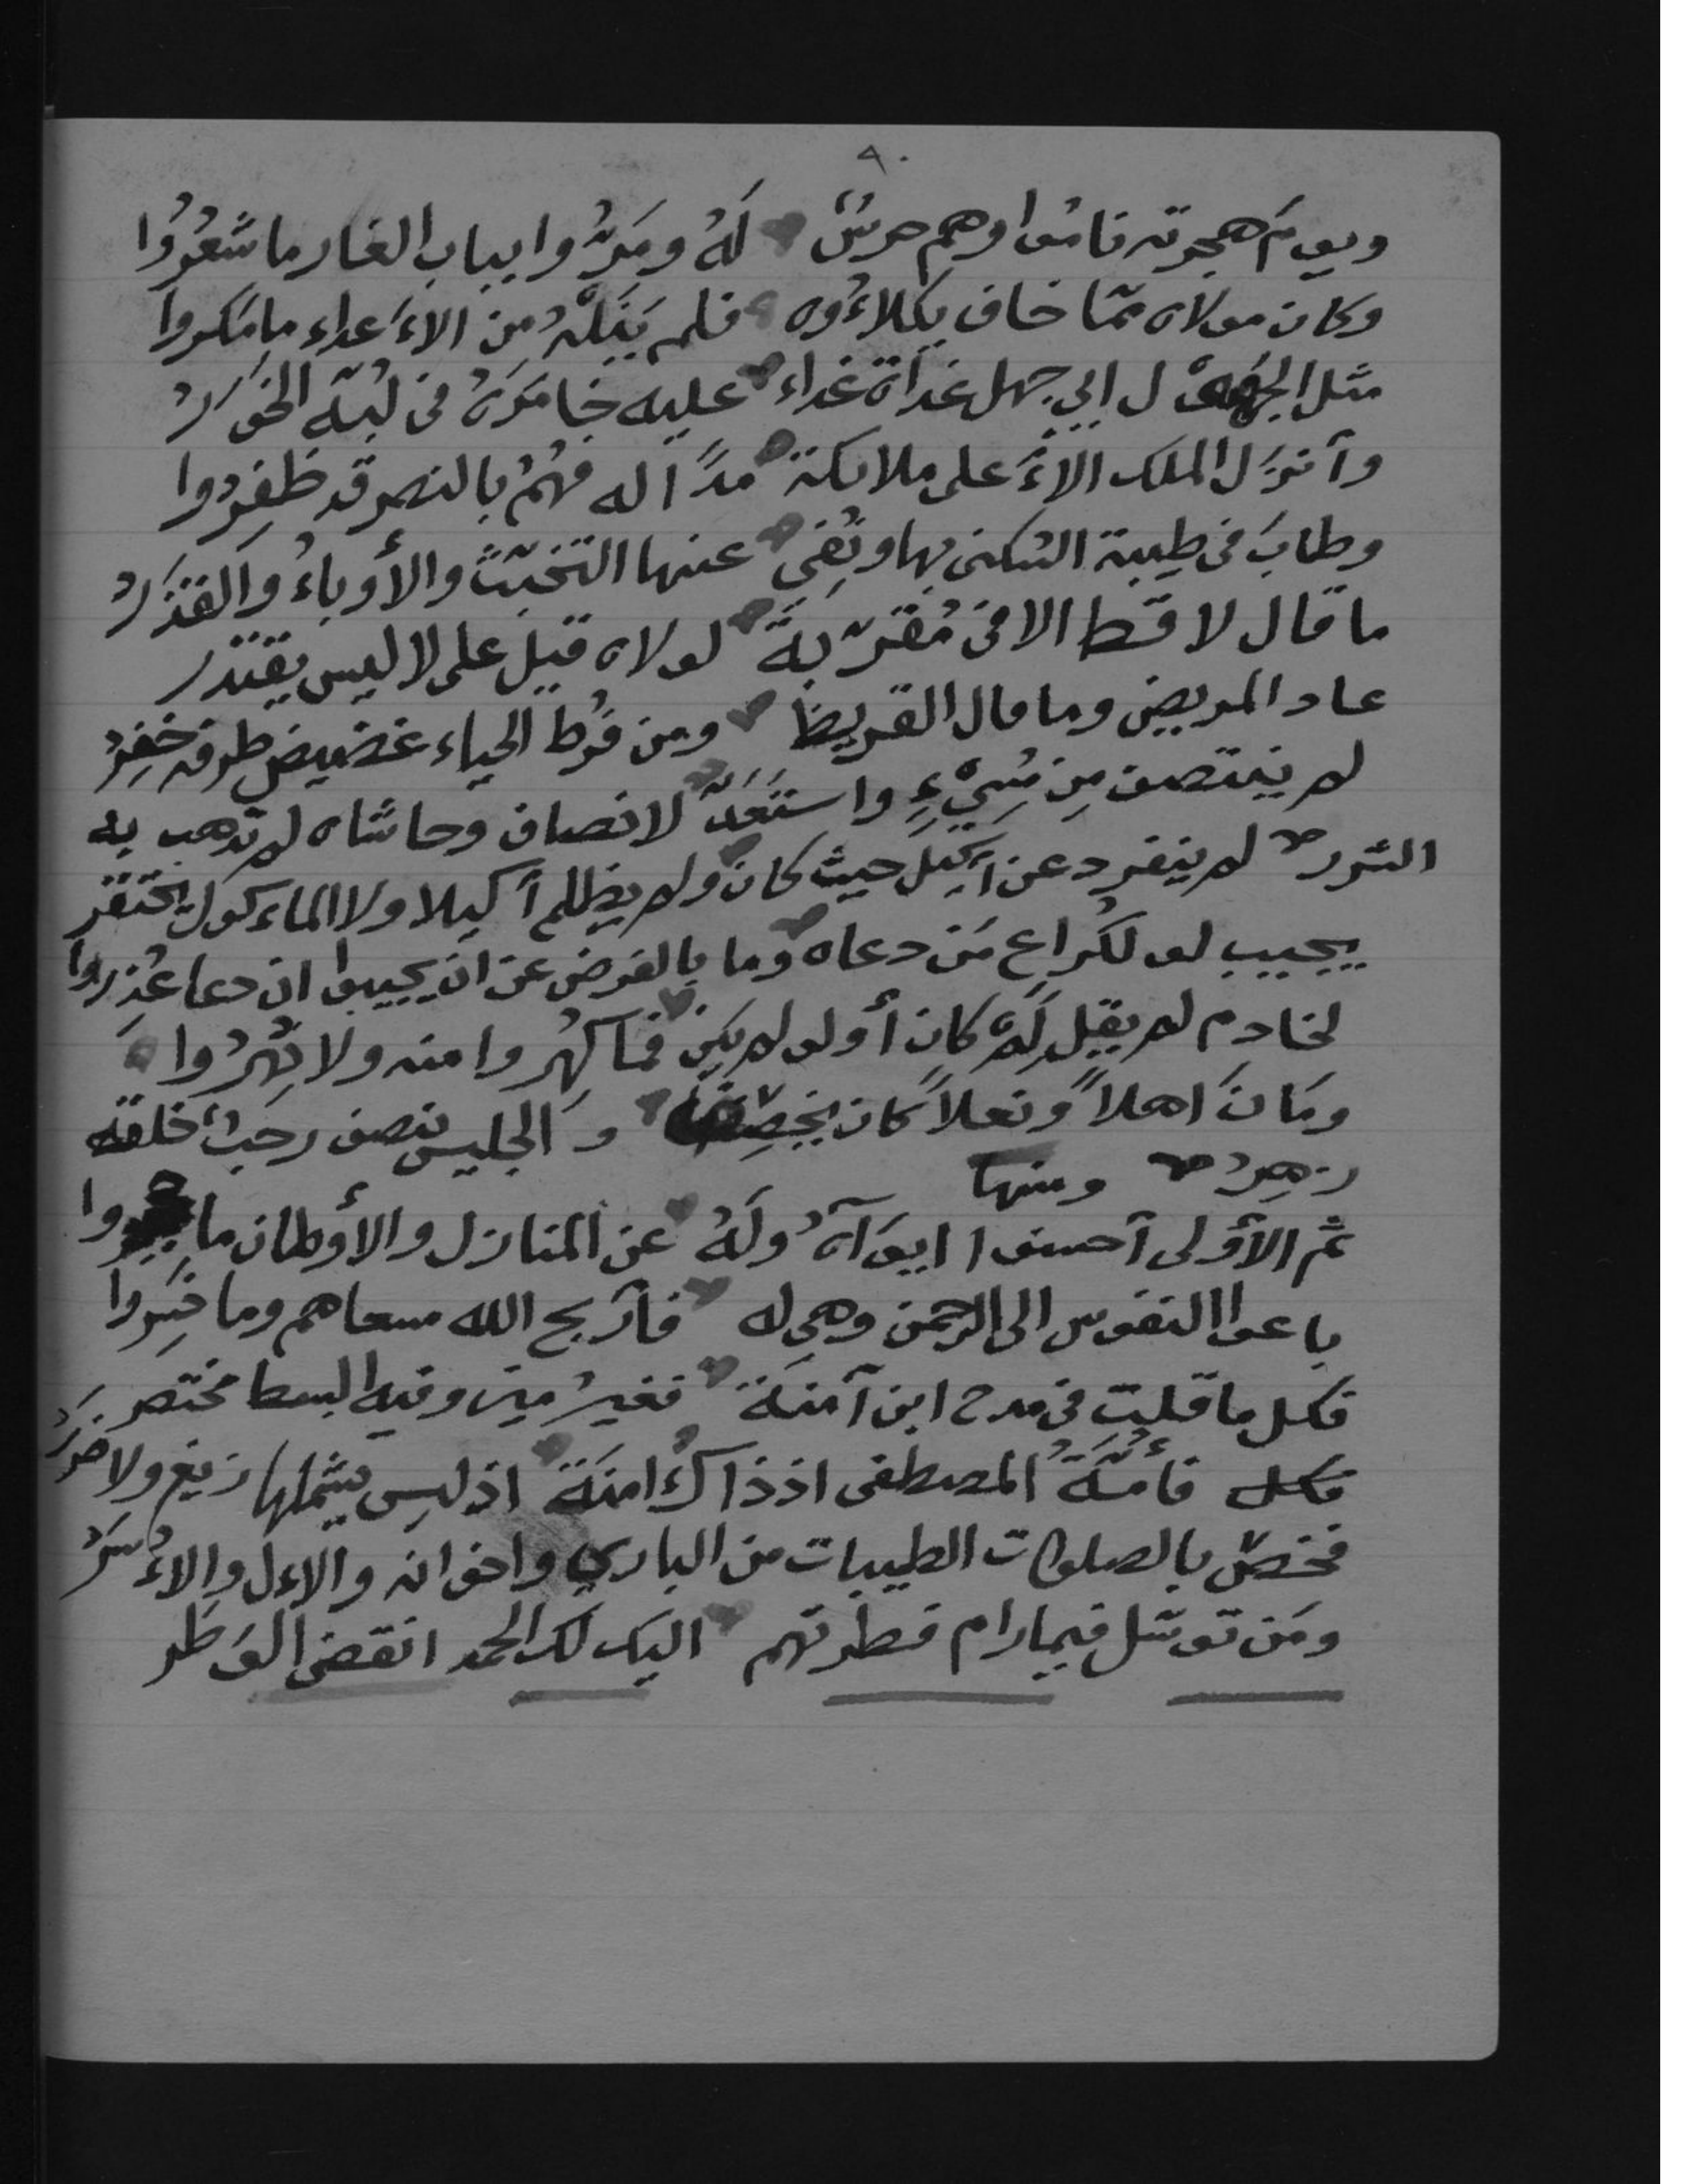 ٩٠
ويومَ هجرته ناموا وهم حرسٌ لَهُ ومَرُّوا بباب الغار ما شَعُرُوا
وكان مولاه ممّا خاف يكلاءُوه فلم يَنَلْهُ من الاءَعداء ما مَكروا
مثل الجهول ابي جهل غداة غداء عليه خامَرَهُ في لُبّه الخَوَرُ
وآنزَل الملك الاءَعلى ملائكة مدًا له فهُمُ بالنصر قد ظَفِرُوا
وطابَ في طيبة السكنى بها ونُفِيَ عنها التخبّثُ والأوباءُ والقَذَرُ
ما قال لا قط الا في مُقرّبةً لولاه قيل على لا ليس يقتدر
عاد المريض وما مال القريضَا ومن فرُط الحياء غضيض طرفه خفِرُ
لم ينتصف مِن مُسِيْءٍ واستَعَدَّ لانصاف وحاشاه لم تذهب به
الشرر لم ينفرد عن اَكِيل حيث كان ولم يظلم آكيلا ولا الماءكول يحتقر
يجيب لو لكُراع مَن دعاه وما بالفرض عن ان يجيبوا ان دعا عُذروا
لخادم لم يقل لِمْ كان أولو لم يكن فما كهُروا منه ولا نُهِرُوا
ومَانَ اهلاً ونعلاً كان يخصِفُها و الجليس نصف رحبٌ خلقه
زهِرُ ومنها
ثم الآولى آحسنوا ايوَآهُ ولَهُ عن المنازل والأوطان ما وا
باعوا النفوس الى الرحمن وهي له فآربح الله مسعاهم وما خَسِروا
فكل ما قلت في مدح ابن آمنَة فغيرُ مين وفيه البسط مختصر
فكل فأُمّةُ المصطفى اذ ذاكَ امنَة اذ ليس يشملها زيغ ولا ضررُ
فخصّ بالصلوات الطيبات من الباري واخوانه والاءل والاءُسَرُ
ومَن توسّل فيما رام فطرتهم اليك لك الحمد انقضى الوَطر